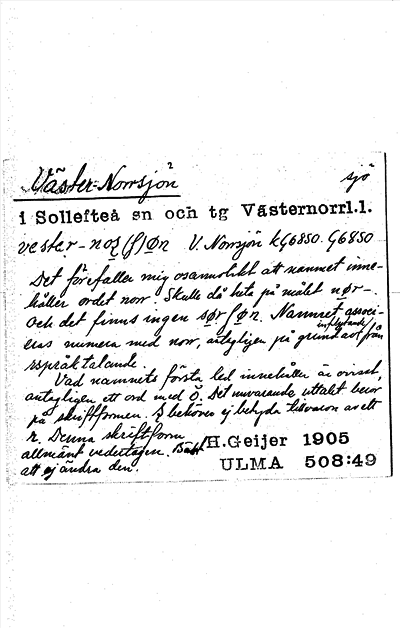 Väster-Norrsjön 2 sjö
i Sollefteå sn och tg Västernorrl.l.
vester-noʂ(ʃ)øn V. Norrsjön kG6850 G6850
Det förefaller mig osannolikt att namnet inne-
håller ordet norr. Skulle då heta på målet nør-.
Och det finns ingen sørʃøn. Namnet associ-
eras numera med norr, antagligen på grund av inflytande från
rspråktalande.
Vad namnets första led innehåller är ovisst,
antagligen ett ord med ŏ. Det nuvarande uttalet beror
på skriftformen. S behöver ej betyda tillvaron av ett
r. Denna skriftform
allmänt vedertagen. Bäst
att ej ändra den.
H.Geijer 1905
ULMA 508:49